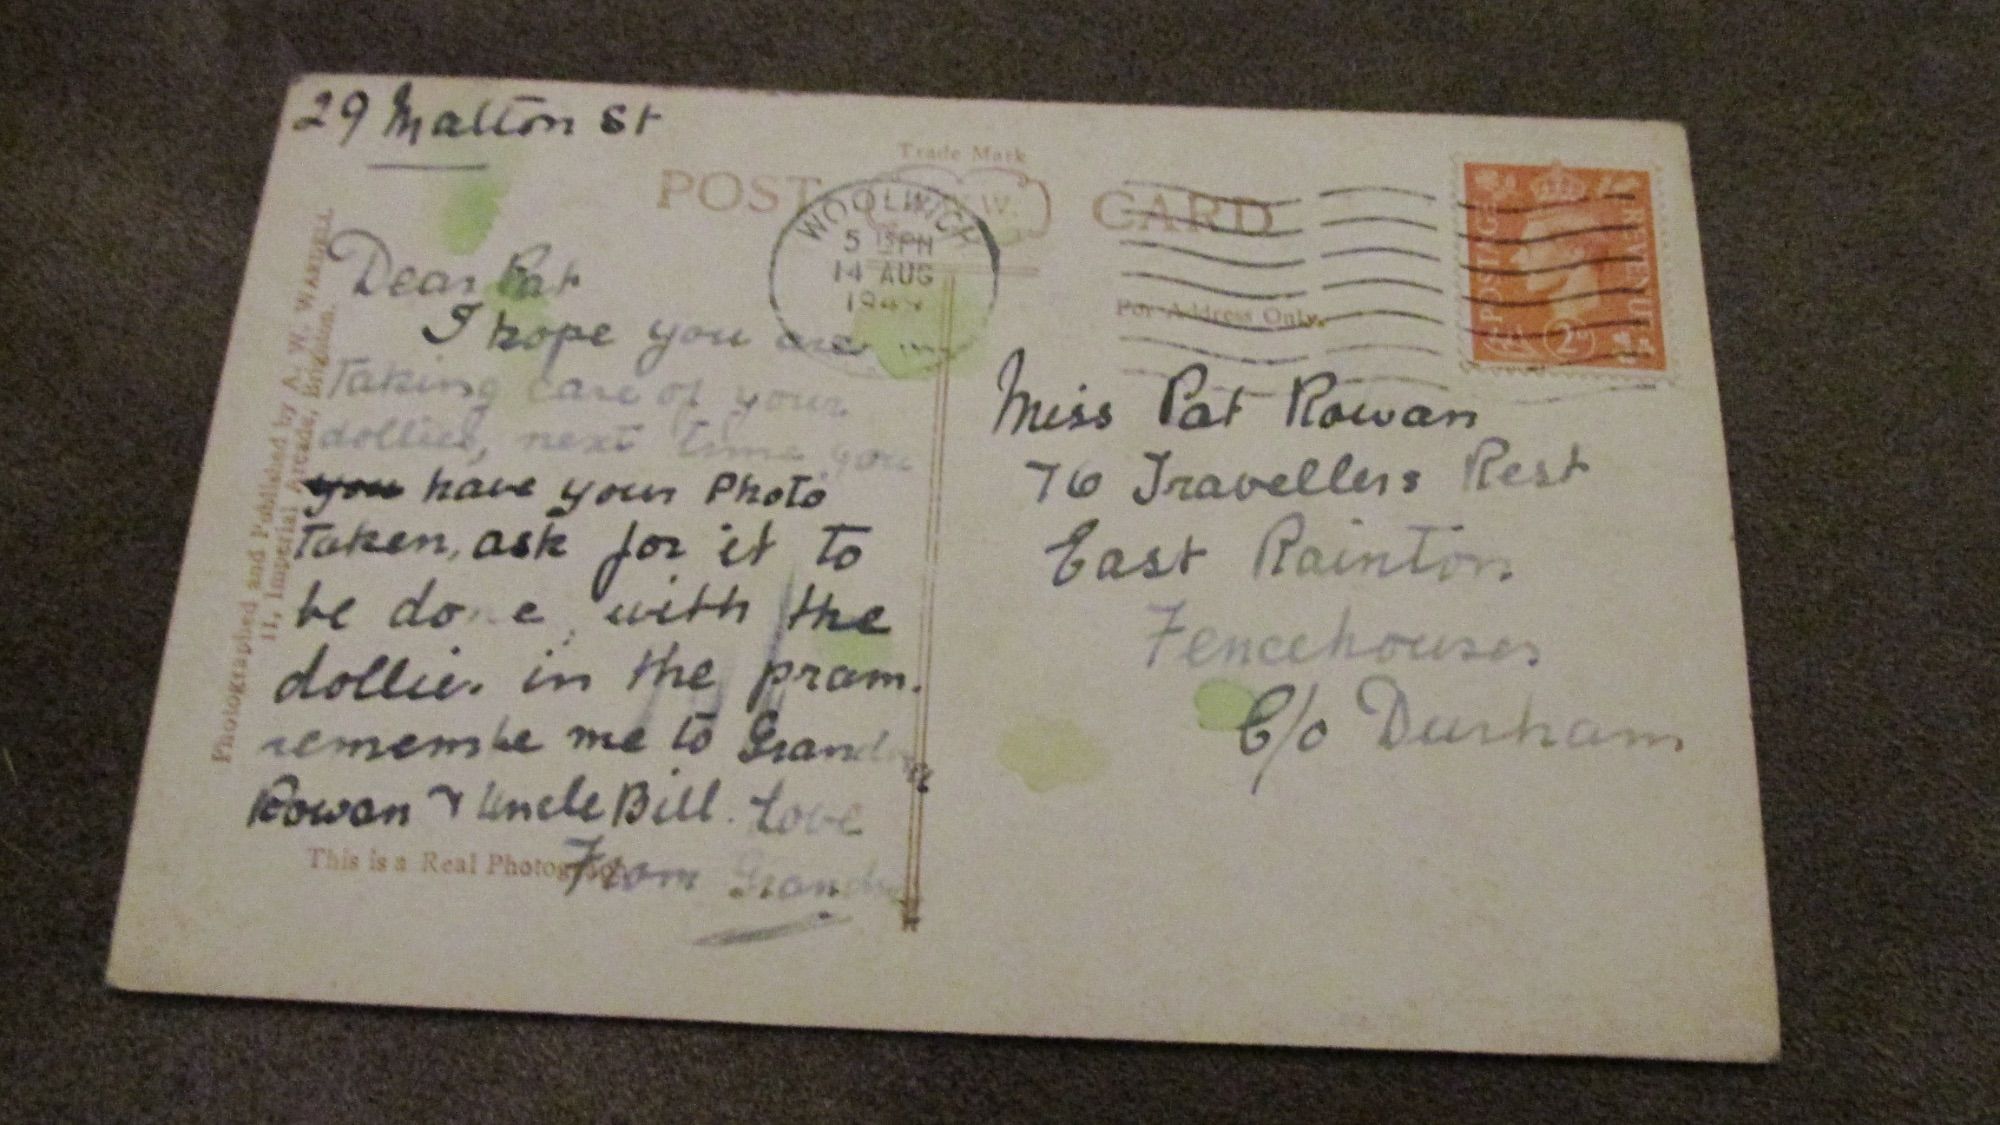 29 Malton St
Trade Mark
POST CARD
W.
WOOLWICH
5 15PM
14 AUG
POSTAGE REVENUE
2D
For Address Only.
Dear Pat
I hope you are
taking care of your
dollies, next time you
you have your Photo
taken, ask for it to
be done with the
dollies in the pram.
remember me to
Rowan & Uncle Bill. Love
From
Miss Pat Rowan
76 Travellers Rest
East Rainton
Fencehouses
C/o Durham
Photographed and Published by A. W. WARDELL
11, Imperial Arcade, Brighton.
This is a Real Photograph